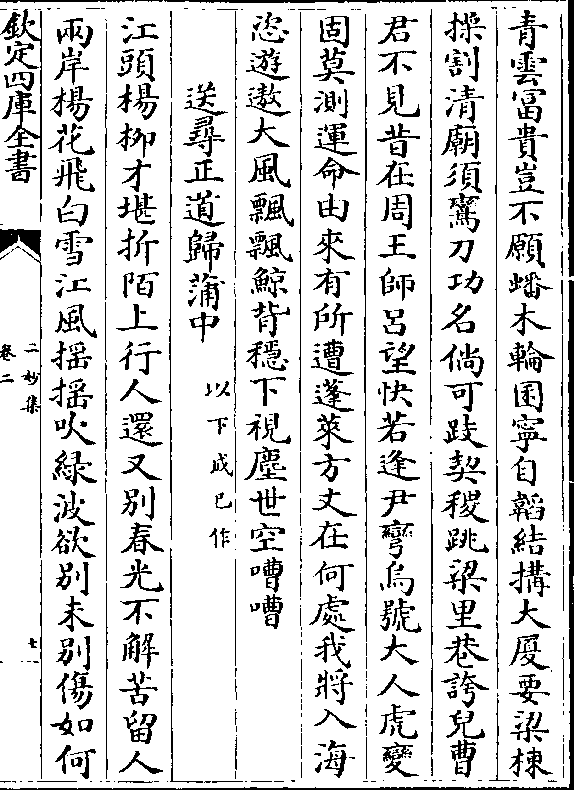 青雲富貴豈不願蟠木輪囷寧自韜結搆大厦要梁棟
操割清廟須鸞刀功名倘可跂契稷跳梁里巷誇兒曹
君不見昔在周王師呂望快若逢尹彎烏號大人虎變
固莫測運命由來有所遭蓬萊方丈在何處我將入海
恣遊遨大風飄飄鯨背穩下視塵世空嘈嘈
送尋正道歸蒲中
以下成已作
江頭楊柳才堪折陌上行人還又別春光不解苦留人
兩岸楊花飛白雪江風揺揺吹綠波欲別未別傷如何
欽定四庫全書
二妙集
卷二
七